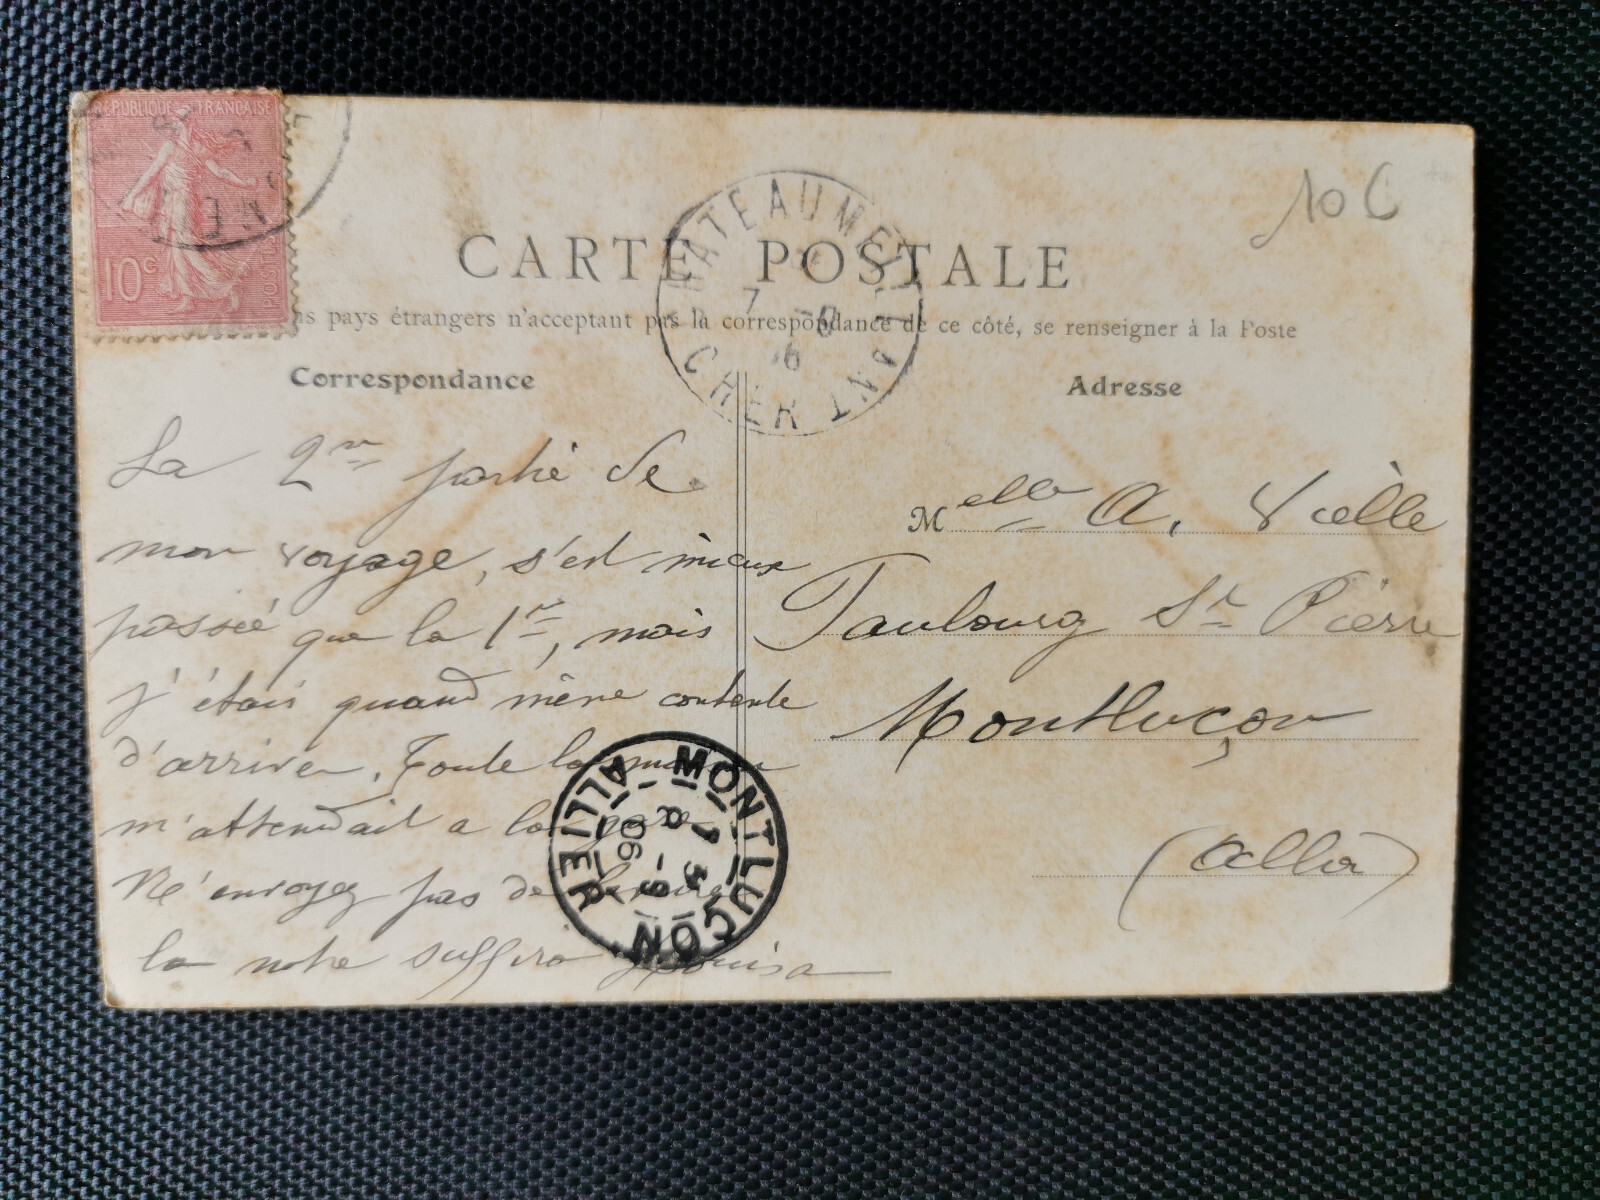 REPUBLIQUE FRANÇAISE
10c
POSTES
10 C
CHATEAUMEILLANT
CHER
CARTE POSTALE
ns pays étrangers n'acceptant pas la correspondance de ce côté, se renseigner à la Poste
Correspondance
La 2me partie de
mon voyage, s'est mieux
passée que la 1re, mais
j'étais quand même contente
d'arriver. Toute la
m'attendait a la gare
N'envoyez pas de
la note suffira Louisa
Adresse
Melle A. Vielle
Faubourg St Pierre
Montluçon
(Allier)
MONTLUÇON
ALLIER
13 -9
06